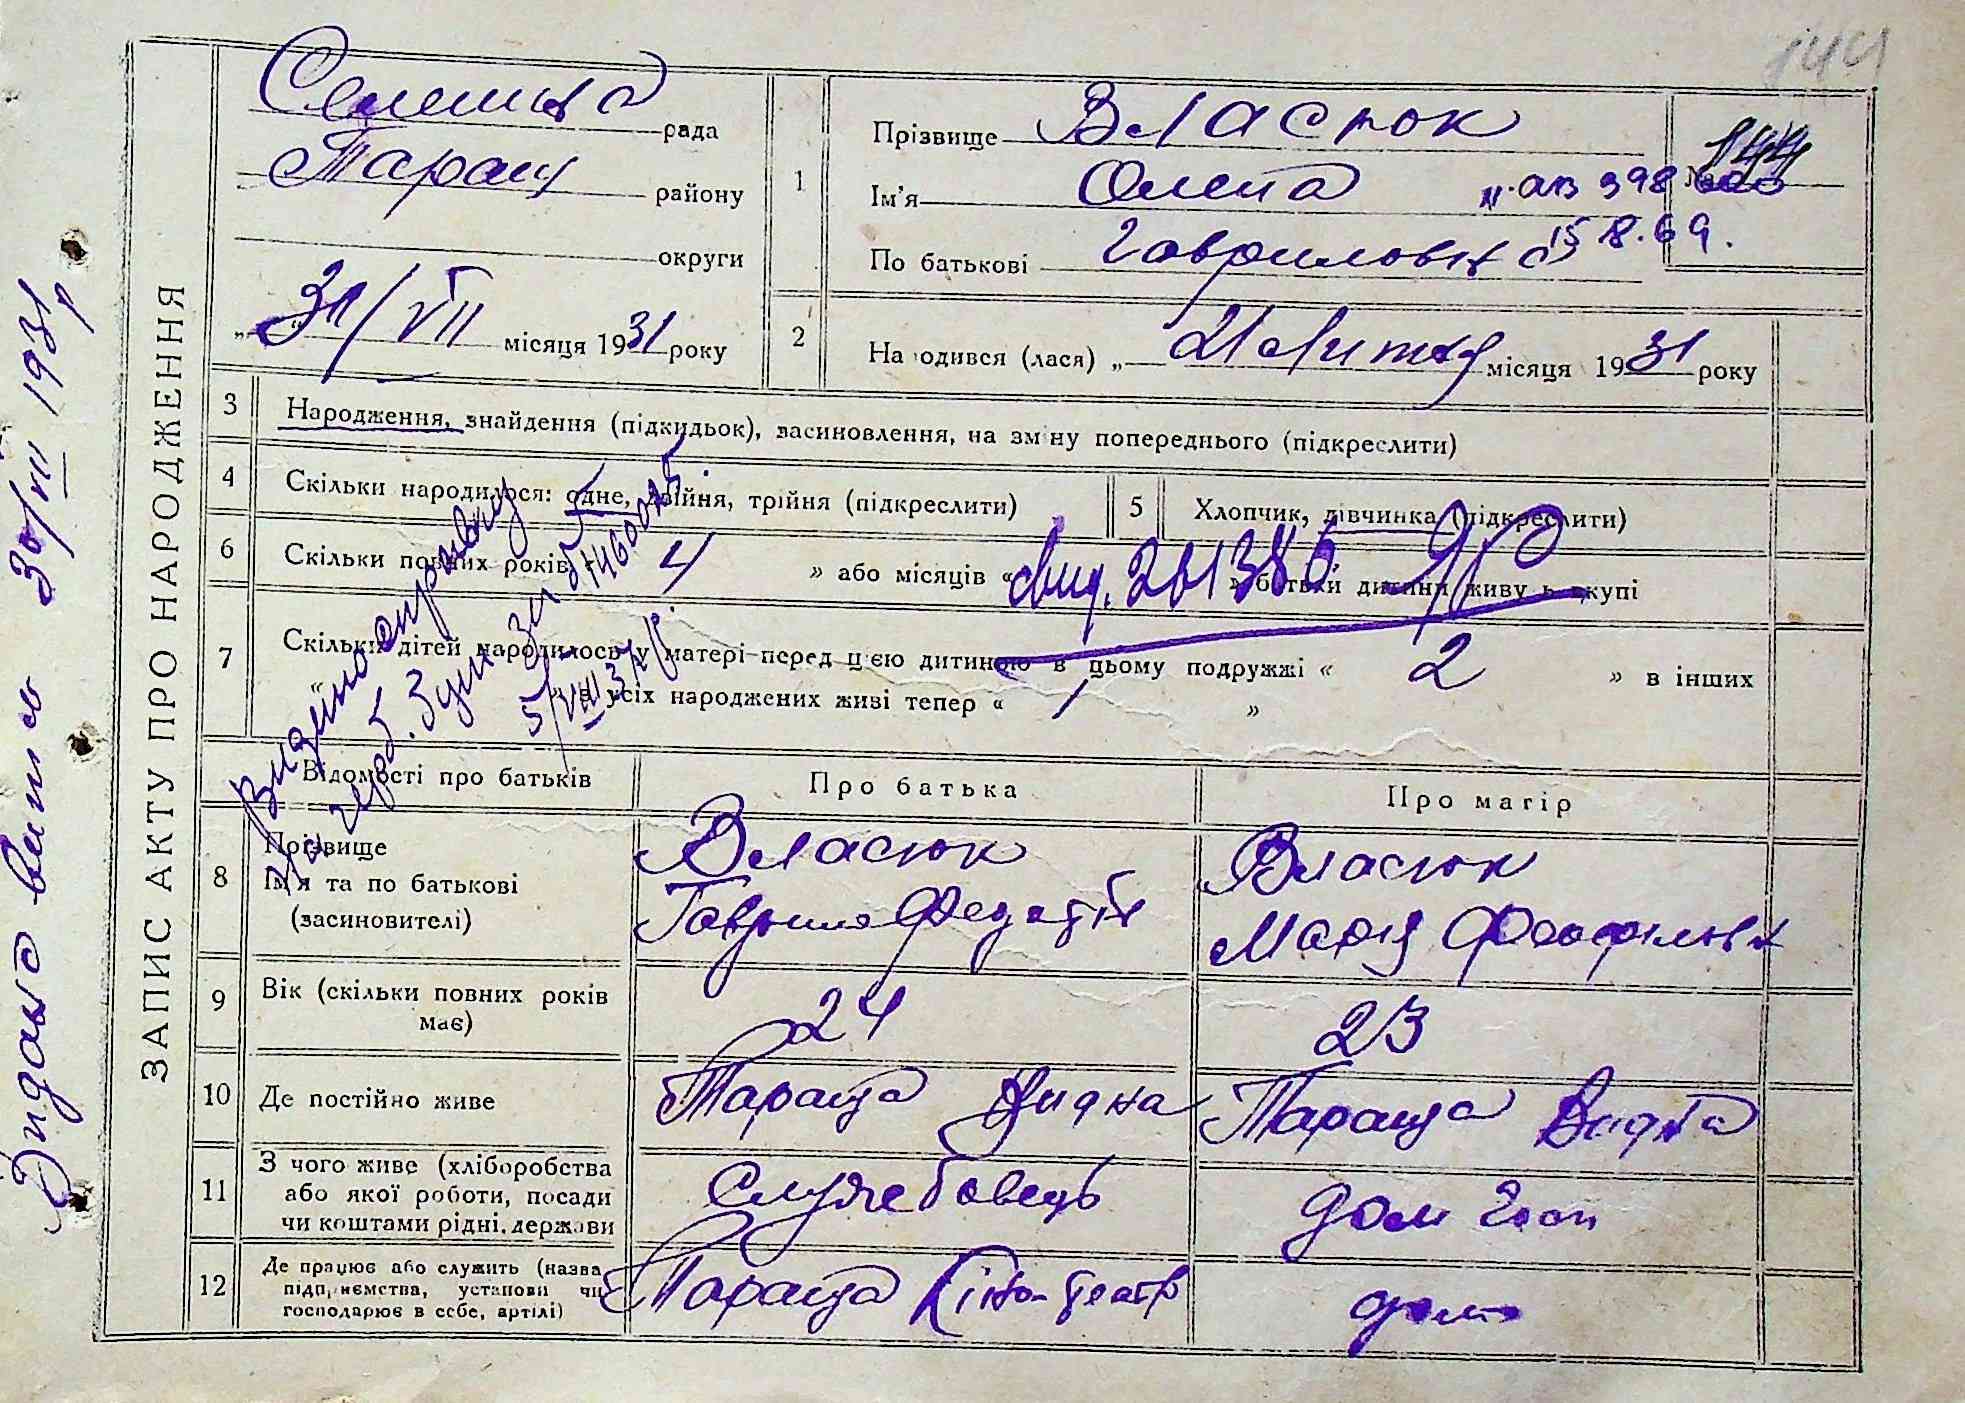 144
ЗАПИС АКТУ ПРО НАРОДЖЕННЯ
Видано випис 30/VII 1931 р
Селищна рада
Таращ району
округи
„31/VII місяця 1931 року
1
Прізвище Власюк
Ім'я Олена
По батькові Гавриловна
144
АВ 398
15 8.69.
2
На одився (лася) „ 21 Лютня місяця 1931 року
3
Народження, знайдення (підкидьок), засиновлення, на зміну попереднього (підкреслити)
4
Скільки народилося: одне, двійня, трійня (підкреслити)
5
Хлопчик, дівчинка (підкреслити)
6
Скільки повних років „ 4 » або місяців “ » батьки дитини живуть вкупі
7
Скільки дітей народилось у матері перед цією дитиною в цьому подружжі “ 2 » в інших
“ » з усіх народжених живі тепер “ 1 »
5/VIII 37 р
Відомості про батьків
Про батька
Про матір
8
Прізвище
Ім'я та по батькові
(засиновителі)
Власюк
Гаврило
Власюк
Марія Феофиловн
9
Вік (скільки повних років має)
24
23
10
Де постійно живе
Тараща
Тараща
11
З чого живе (хліборобства
або якої роботи, посади
чи коштами рідні, держави
Служебовець
дом госп
12
Де працює або служить (назва
підприємства, установи чи
господарює в себе, артілі)
Тараща Кіно-театр
дома